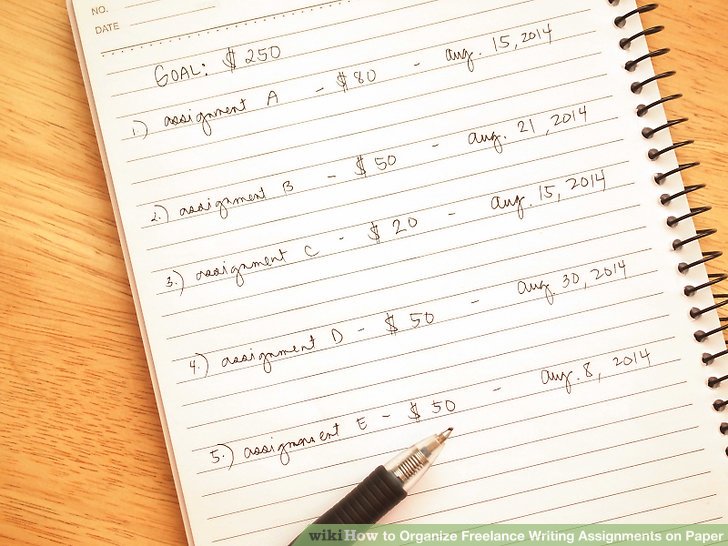 NO.
DATE
GOAL: $ 250
1.) assignment A - $80 - aug. 15, 2014
2.) assignment B - $50 - aug. 21, 2014
3.) assignment C - $20 - aug. 15, 2014
4.) assignment D - $50 - aug. 30, 2014
5.) assignment E - $50 - aug. 8, 2014
wikiHow to Organize Freelance Writing Assignments on Paper